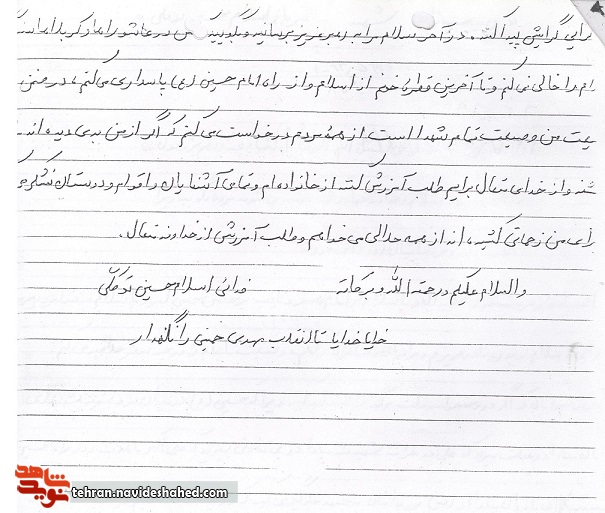 برایی گرایش پیدا کنند. در آخر سلام مرا به رهبر عزیز برسانید و بگویید من در عاشورا ها و کربلاها
ام را خالی نمی کنم و تا آخرین قطره خونم از اسلام و از راه امام حسین (ع) پاسداری می کنم، در ضمن
یت من وصیت تمام شهدا است از همه مردم درخواست می کنم که اگر از من بدی دیده اند
و از خدای متعال برایم طلب آمرزش کنند از خانواده ام و تمامی آشنایان و اقوام و دوستان
برای من زحماتی کشیده اند از همه حلالی می خواهم و طلب آمرزش از خداوند متعال.
والسلام علیکم و رحمة الله و برکاته فدائی اسلام حسین توکلی
خدایا خدایا تا انقلاب مهدی خمینی را نگهدار
نوید شاهد
tehran.navideshahed.com